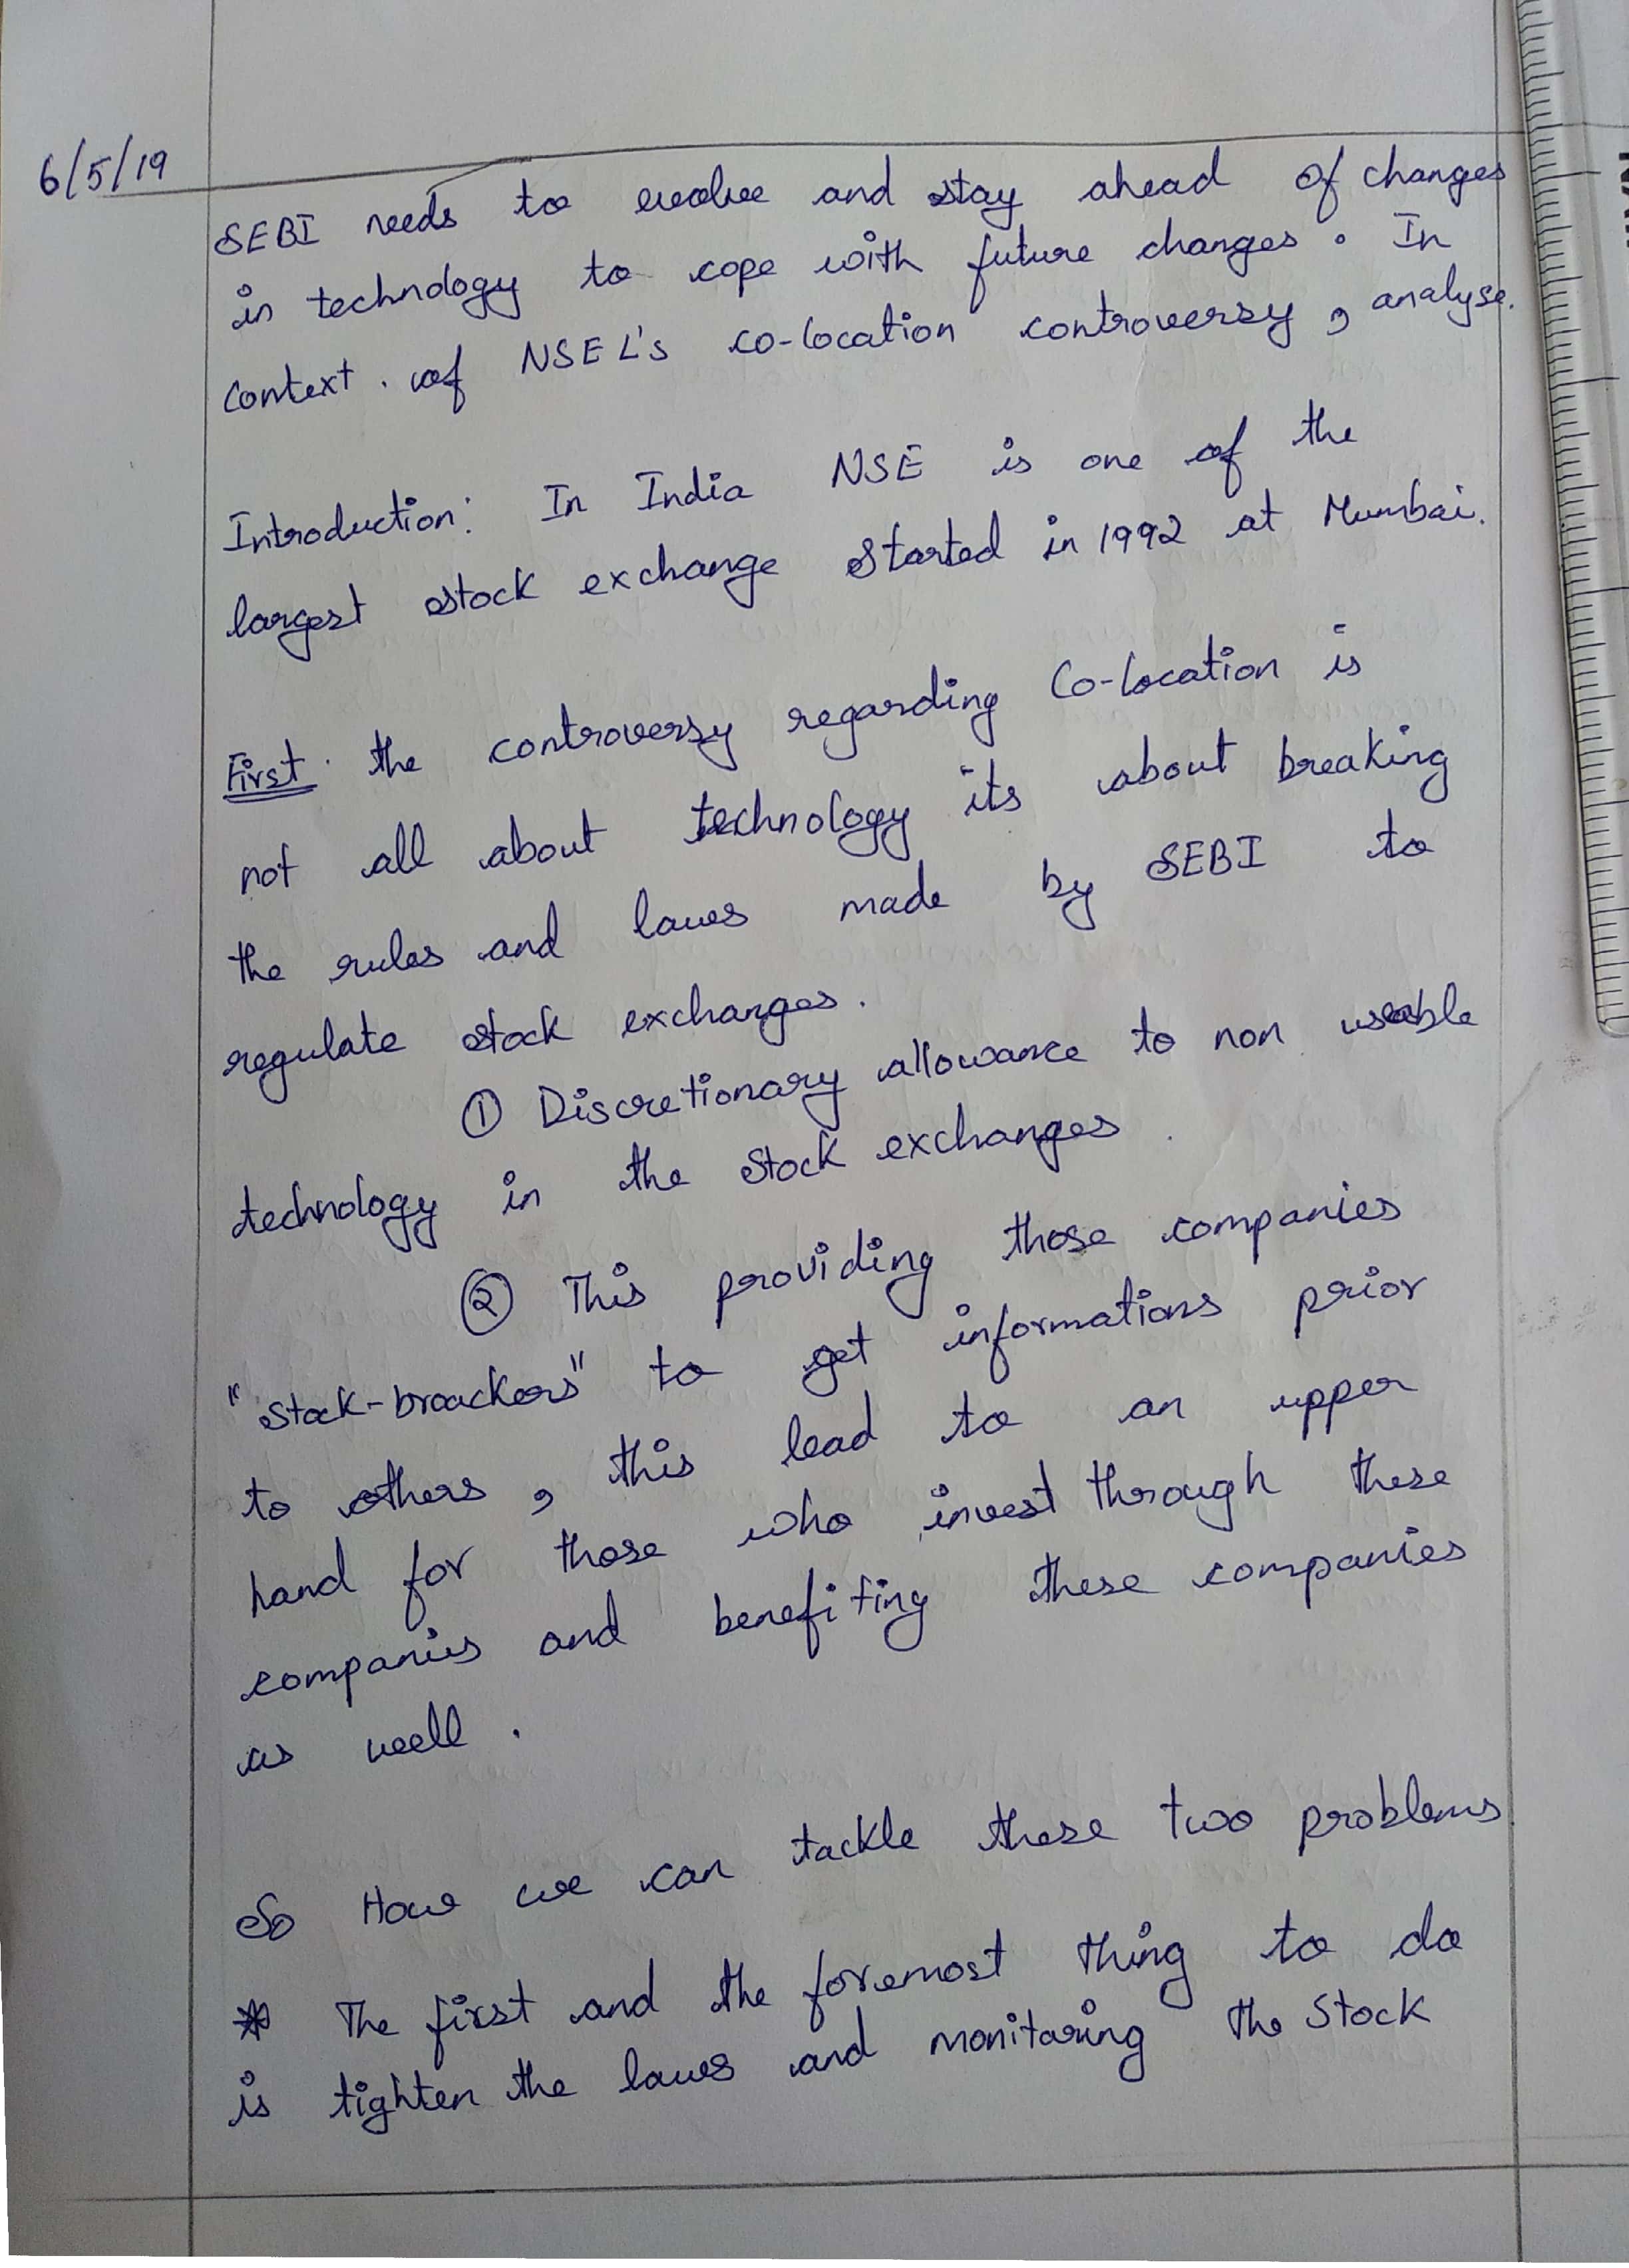 6/5/19
SEBI needs to evolve and stay ahead of changes
in technology to cope with future changes. In
context of NSEL's co-location controversy, analyse.
Introduction: In India NSE is one of the
largest stock exchange started in 1992 at Mumbai.
First the controversy regarding Co-location is
not all about technology its about breaking
the rules and laws made by SEBI to
regulate stock exchanges.
① Discretionary allowance to non useable
technology in the stock exchanges.
② This providing those companies
"stock-broackers" to get informations prior
to others, this lead to an upper
hand for those who invest through these
companies and benefiting these companies
as well.
So How we can tackle these two problems
* The first and the foremost thing to do
is tighten the laws and monitoring the Stock